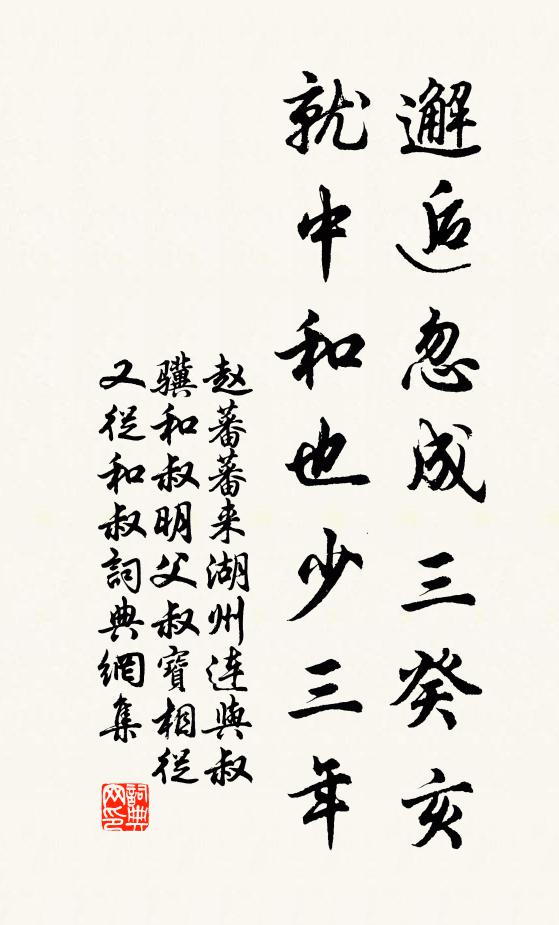 邂逅忽成三癸亥
就中和也少三年
赵蕃蕃来湖州连与叔
骥和叔明父叔寶相従
又従和叔詞典網集
詞典网印